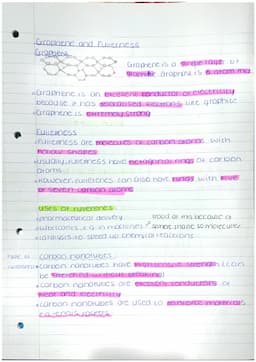 Graphene and Fullerness
Graphene
Graphene is a single layer of
graphite. Graphene is 1 atom thick
• Graphene is an excellent conductor of electricity
because it has delocalised electrons like graphite
• Graphene is extremely strong
Fullerenes
• Fullerenes are molecules of carbon atoms with
hollow shapes
• Usually fullerenes have hexagonal rings of carbon
atoms
• However, fullerenes can also have rings with five
or seven carbon atoms
Uses of fullerenes
• pharmaceutical delivery
• lubricants e.g. in machines
• catalysts to speed up chemical reactions
Carbon nanotubes
• carbon nanotubes have high tensile strength (can
be stretched without breaking)
• carbon nanotubes are excellent conductors of
heat and electricity
• carbon nanotubes are used to reinforce materials
e.g. tennis rackets